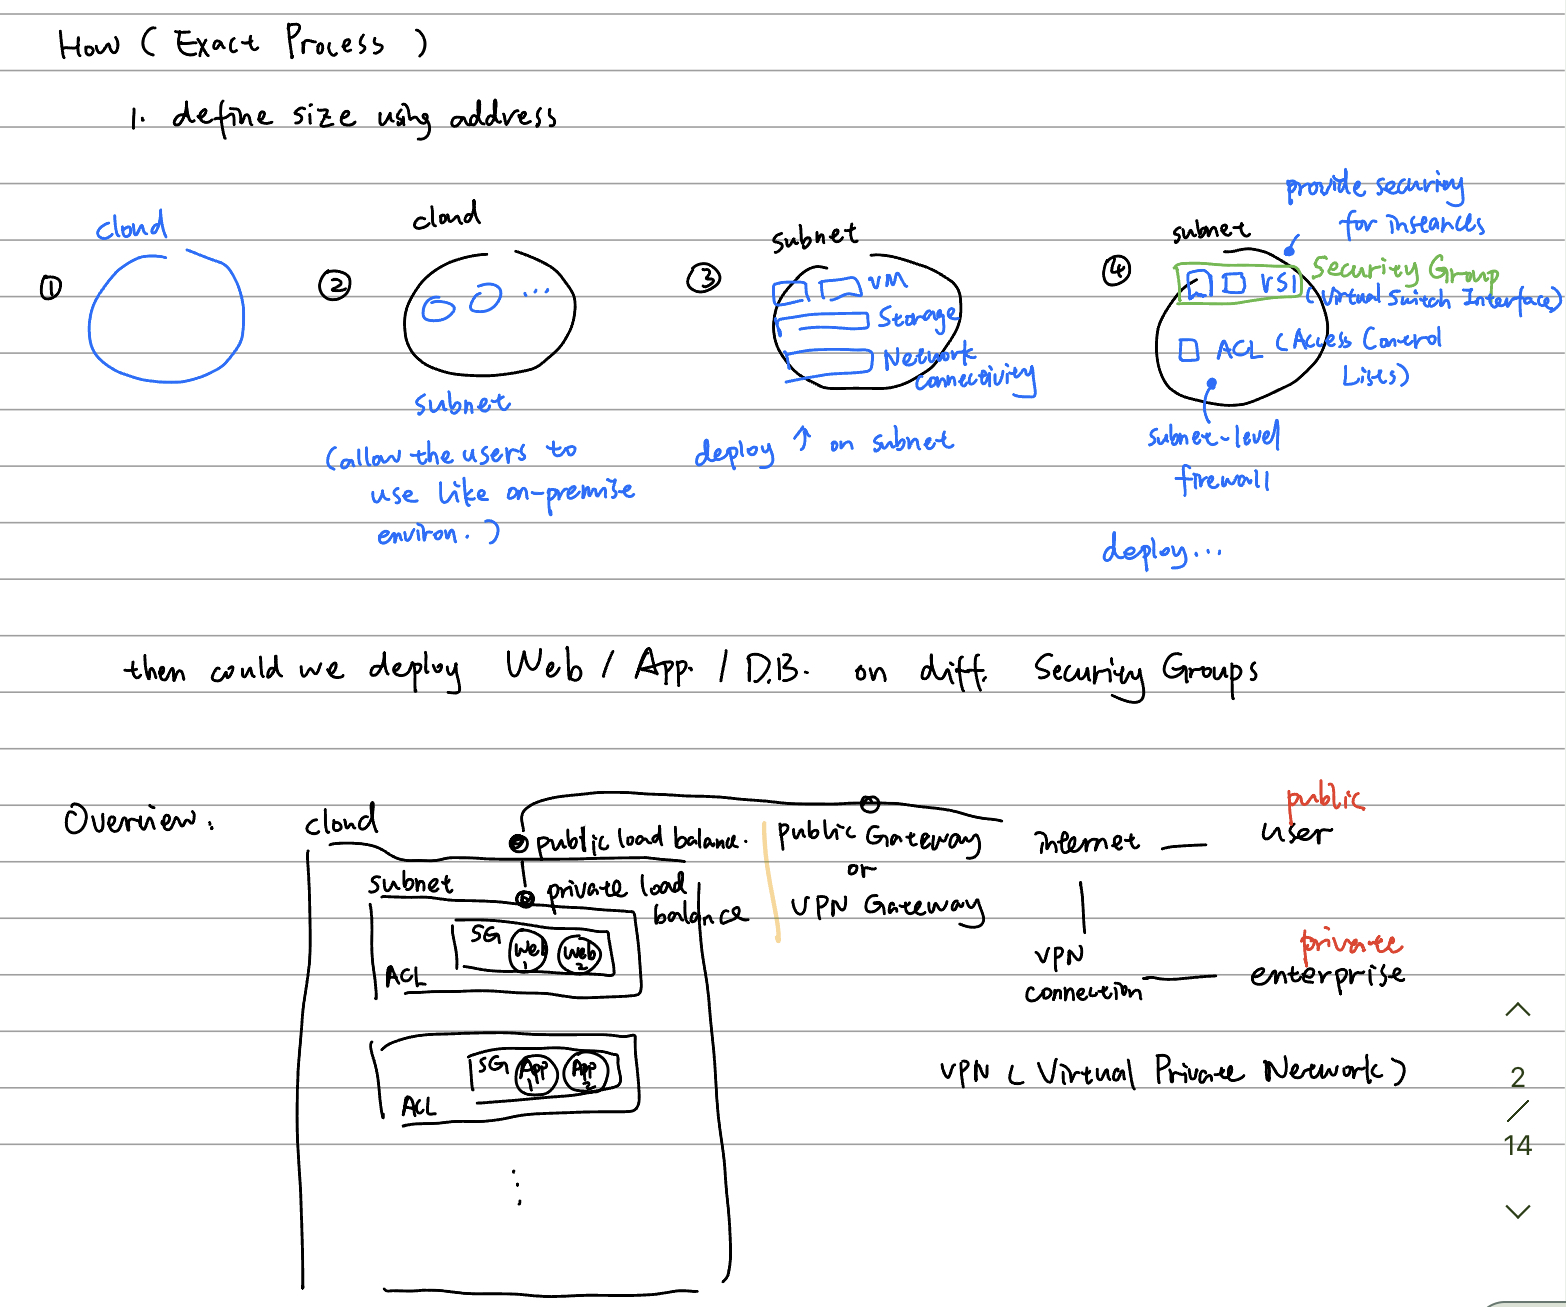 How ( Exact Process )
1. define size using address
①
cloud
②
cloud
...
subnet
(allow the users to
use like on-premise
environ.)
③
subnet
VM
Storage
Network
connectivity
deploy ↑ on subnet
④
subnet
provide security
for instances
VSI
Security Group
(Virtual Switch Interface)
ACL (Access Control
Lists)
subnet-level
firewall
deploy...
then could we deploy Web / App. / D.B. on diff. Security Groups
Overview:
cloud
public load balance.
subnet
private load
balance
SG Web 1 Web 2
ACL
SG App 1 App 2
ACL
⋮
public Gateway
or
VPN Gateway
internet
public
user
VPN
connection
private
enterprise
VPN ( Virtual Private Network )
2
/
14